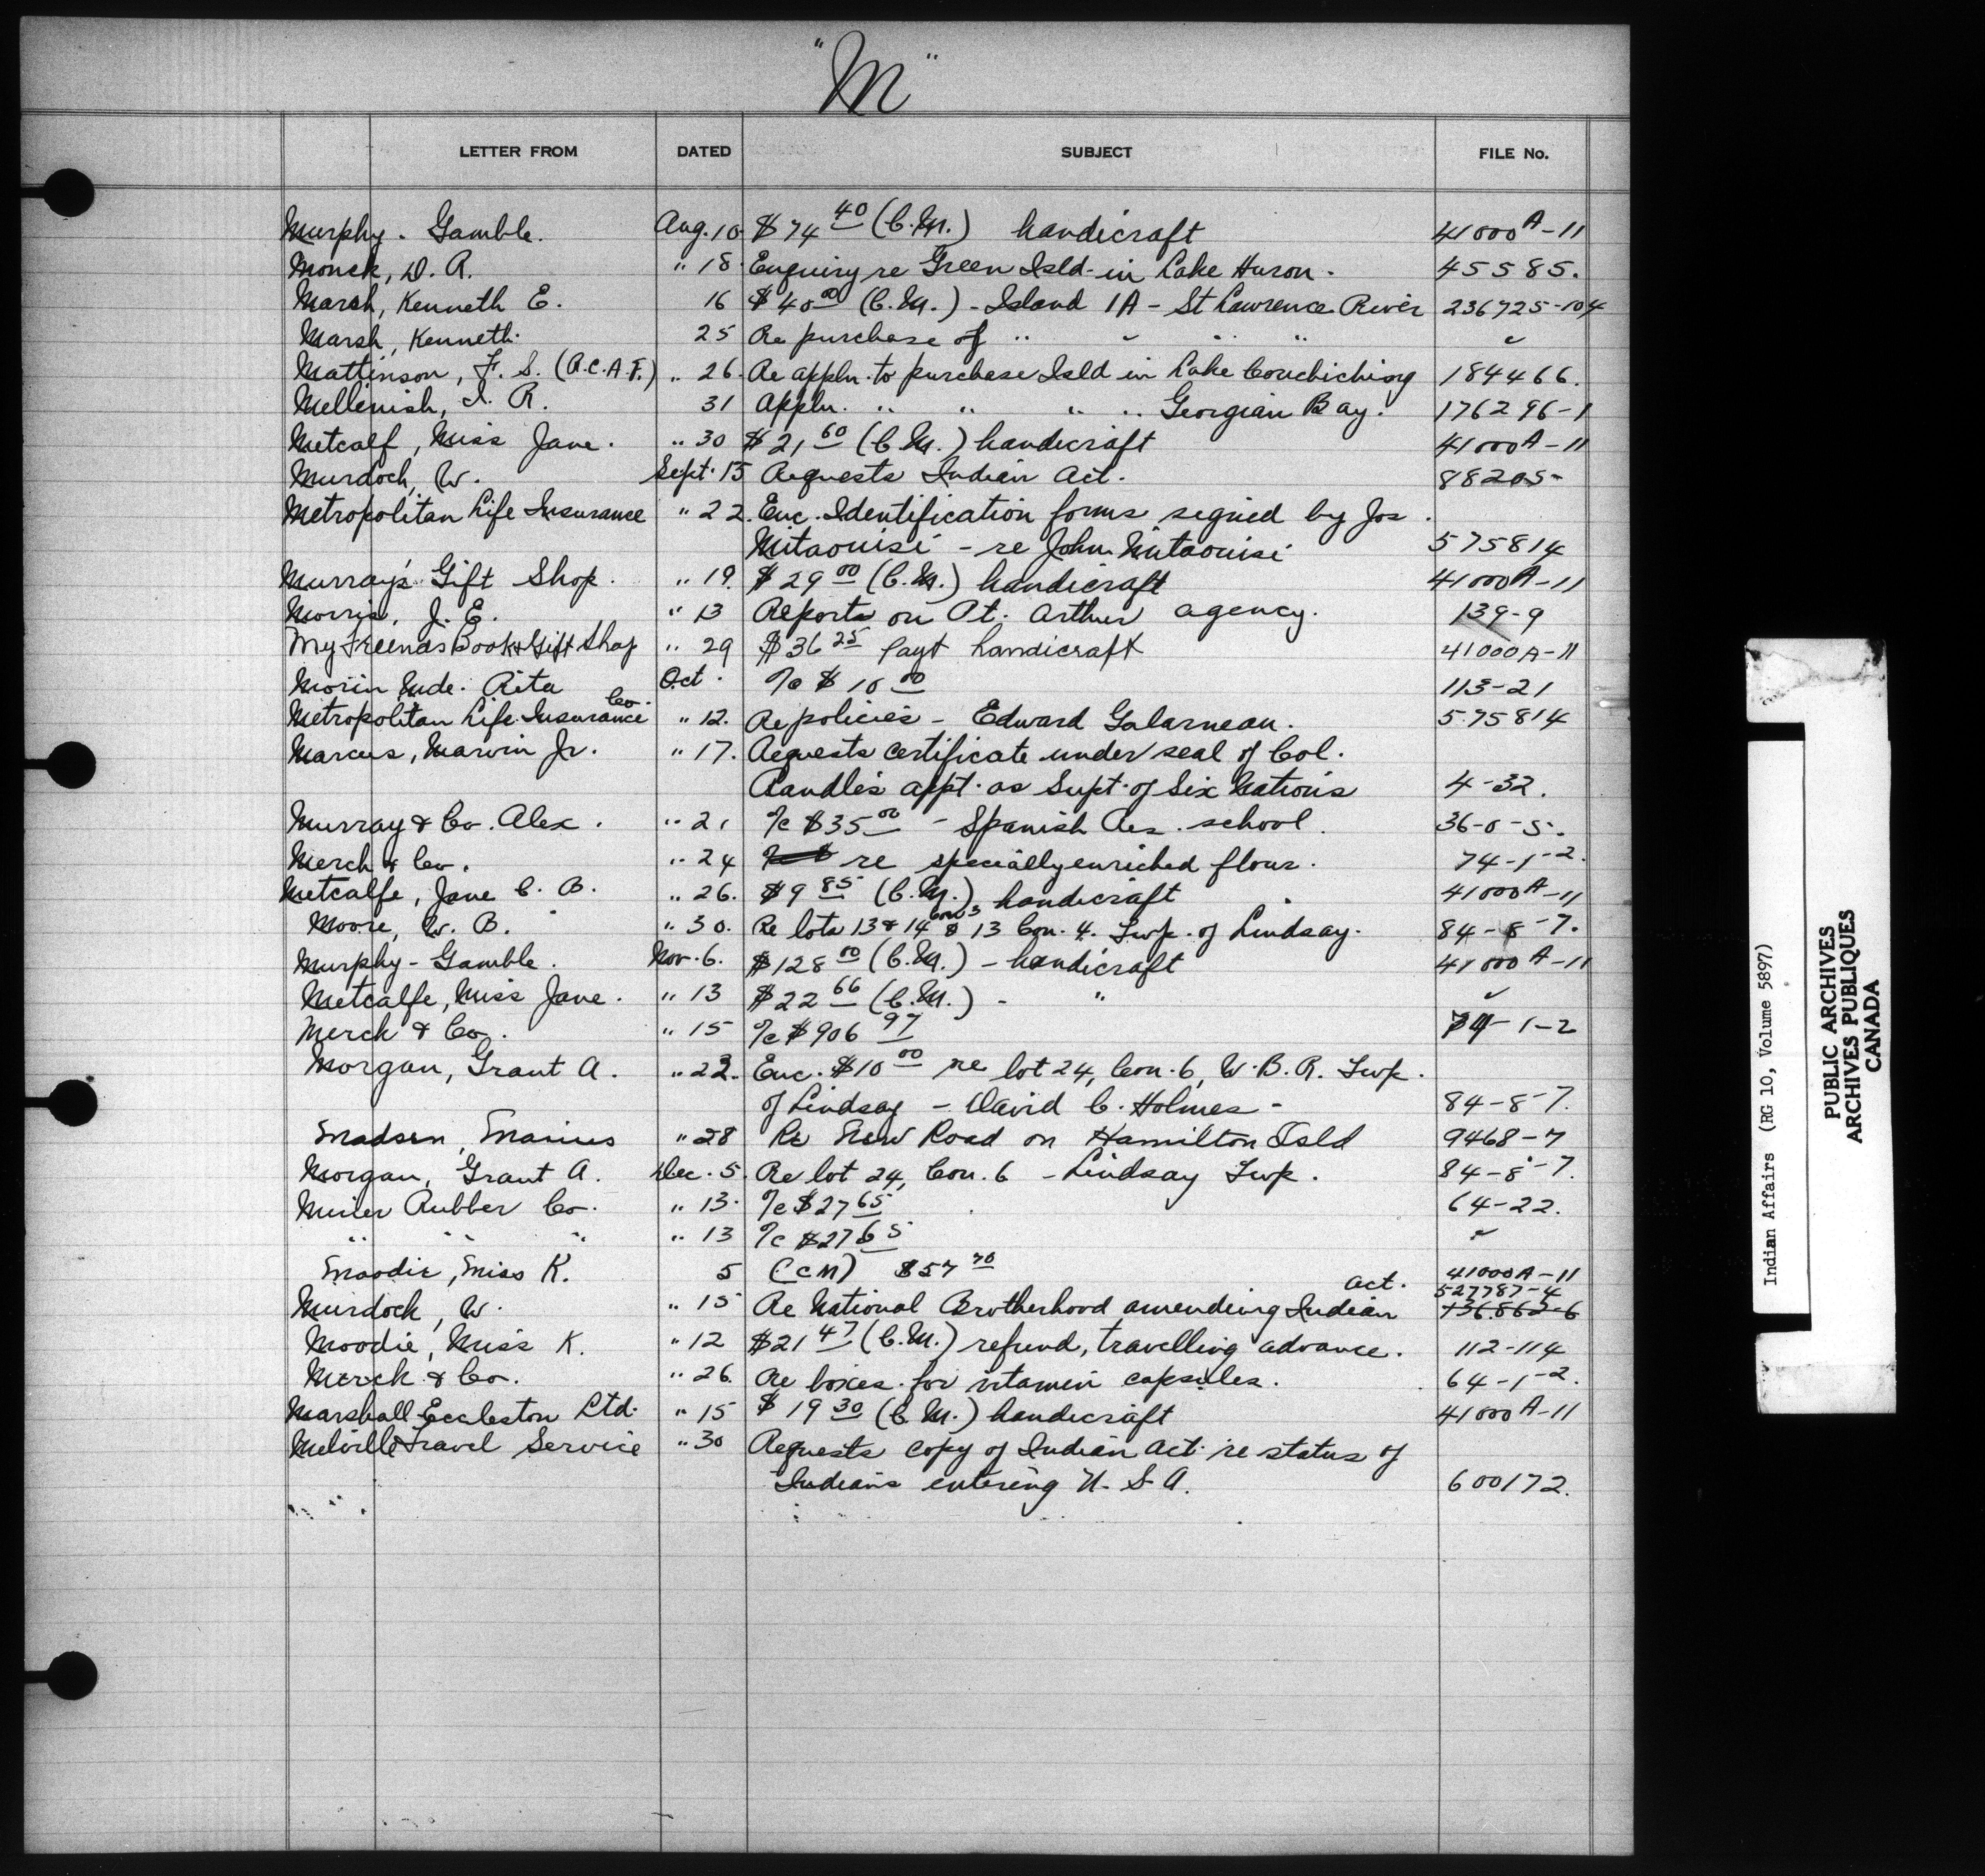 "M"
LETTER FROM DATED SUBJECT FILE No.
Murphy - Gamble. Aug. 10 $74 40 (C.M.) handicraft 41000A-11
Monck, D. R. " 18. Enquiry re Green Isld. in Lake Huron. 45585.
Marsh, Kenneth E. 16 $40 00 (C.M.) - Island 1A - St Lawrence River 236725-104
Marsh, Kenneth. 25 Re purchase of " " " " "
Mattinson, F. S. (R.C.A.F.) " 26. Re appln. to purchase Isld in Lake Couchiching 184466.
Mellenish, I. R. 31 Appln. " " " " Georgian Bay. 176296-1
Metcalf, Miss Jane. " 30 $21 60 (C.M.) handicraft 41000A-11
Murdoch, W. Sept. 15 Requests Indian Act. 88205
Metropolitan Life Insurance " 22. Enc. Identification forms signed by Jos.
Mitaouisi - re John Mitaouisi 575814
Murray's Gift Shop. " 19. $29 00 (C.M.) handicraft 41000A-11
Morris, J. E. " 13 Reports on Pt. Arthur agency. 139-9
My Friends Book & Gift Shop " 29 $36 25 Payt handicraft 41000A-11
Morin Mde. Rita Oct. %c $10 00 113-21
Metropolitan Life Insurance Co. " 12. Re policies - Edward Galarneau. 575814
Marcus, Marvin Jr. " 17. Requests certificate under seal of Col.
Randle's appt. as Supt. of Six Nations 4-32.
Murray & Co. Alex. " 21 %c $35 00 - Spanish Res. school. 36-0-5.
Merck & Co. " 24 re specially enriched flour. 74-1-2.
Metcalfe, Jane C. B. " 26. $9 85 (C.M.) handicraft 41000A-11
Moore, W. B. " 30. Re lots 13 & 14 Con 3 & 13 Con. 4. Twp. of Lindsay. 84-8-7.
Murphy - Gamble. Nov. 6. $128 00 (C.M.) - handicraft 41000A-11
Metcalfe, Miss Jane. " 13 $22 66 (C.M.) - " "
Merck & Co. " 15 %c $906 97 74-1-2
Morgan, Grant A. " 22. Enc. $10 00 re lot 24, Con. 6, W.B.R. Twp.
of Lindsay - David C. Holmes - 84-8-7.
Madsen, Marius " 28 Re New Road on Hamilton Isld 9468-7
Morgan, Grant A. Dec. 5. Re lot 24, Con. 6 - Lindsay Twp. 84-8-7.
Miner Rubber Co. " 13. %c $27 65 64-22.
" " " " 13 %c $27 65 "
Moodie, Miss K. 5 (CM) $57 70 41000A-11
Murdock, W. " 15 Re National Brotherhood amending Indian Act. 527787-4
Moodie, Miss K. " 12 $21 47 (C.M.) refund, travelling advance. 112-114
Merck & Co. " 26. Re boxes for vitamin capsules. 64-1-2.
Marshall Eccleston Ltd. " 15 $19 30 (C.M.) handicraft 41000A-11
Melville Travel Service " 30 Requests copy of Indian Act re status of
Indians entering U.S.A. 600172.
Indian Affairs (RG 10, Volume 5897)
PUBLIC ARCHIVES
ARCHIVES PUBLIQUES
CANADA